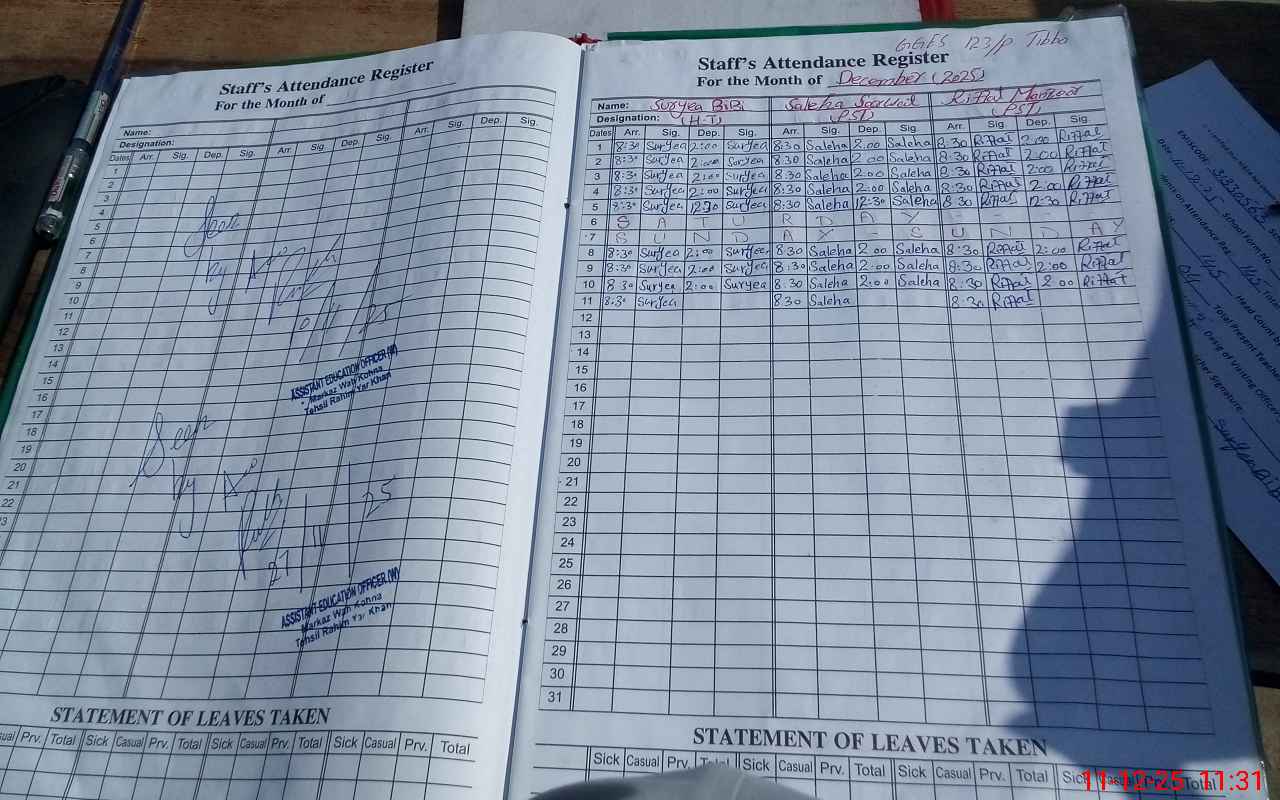 Staff's Attendance Register
For the Month of
Name:
Designation:
Dates Arr. Sig. Dep. Sig. Arr. Sig. Dep. Sig. Arr. Sig. Dep. Sig.
1
2
3
4
5
6
7
8
9
10
11
12
13
14
15
16
17
18
19
20
21
22
23
Seen
by
10/11/25
ASSISTANT EDUCATION OFFICER (W)
Markaz Wah Kohna
Tehsil Rahim Yar Khan
Seen
by
27/11/25
ASSISTANT EDUCATION OFFICER (W)
Markaz Wah Kohna
Tehsil Rahim Yar Khan
STATEMENT OF LEAVES TAKEN
Casual Prv. Total Sick Casual Prv. Total Sick Casual Prv. Total Sick Casual Prv. Total
GGES 123/P Tibba
Staff's Attendance Register
For the Month of December (2025)
Name: Suryea BiBi Saleha Sarwat Riffat Manzoor
Designation: (H.T) (PST) (PST)
Dates Arr. Sig. Dep. Sig. Arr. Sig. Dep. Sig. Arr. Sig. Dep. Sig.
1 8:30 Suryea 2:00 Suryea 8:30 Saleha 2:00 Saleha 8:30 Riffat 2:00 Riffat
2 8:30 Suryea 2:00 Suryea 8:30 Saleha 2:00 Saleha 8:30 Riffat 2:00 Riffat
3 8:30 Suryea 2:00 Suryea 8:30 Saleha 2:00 Saleha 8:30 Riffat 2:00 Riffat
4 8:30 Suryea 2:00 Suryea 8:30 Saleha 2:00 Saleha 8:30 Riffat 2:00 Riffat
5 8:30 Suryea 12:30 Suryea 8:30 Saleha 12:30 Saleha 8:30 Riffat 12:30 Riffat
6 S A T U R D A Y - - - -
7 S U N D A Y - S U N D A Y
8 8:30 Suryea 2:00 Suryea 8:30 Saleha 2:00 Saleha 8:30 Riffat 2:00 Riffat
9 8:30 Suryea 2:00 Suryea 8:30 Saleha 2:00 Saleha 8:30 Riffat 2:00 Riffat
10 8:30 Suryea 2:00 Suryea 8:30 Saleha 2:00 Saleha 8:30 Riffat 2:00 Riffat
11 8:30 Suryea 8:30 Saleha 8:30 Riffat
12
13
14
15
16
17
18
19
20
21
22
23
24
25
26
27
28
29
30
31
STATEMENT OF LEAVES TAKEN
Sick Casual Prv. Total Sick Casual Prv. Total Sick Casual Prv. Total
EMISCODE:
Date 11-12-25 School Form No
on Attendance Reg. 145
Head Count
Total Present Teacher
Desig of Visiting Officer
Signature.
11-12-25 11:31